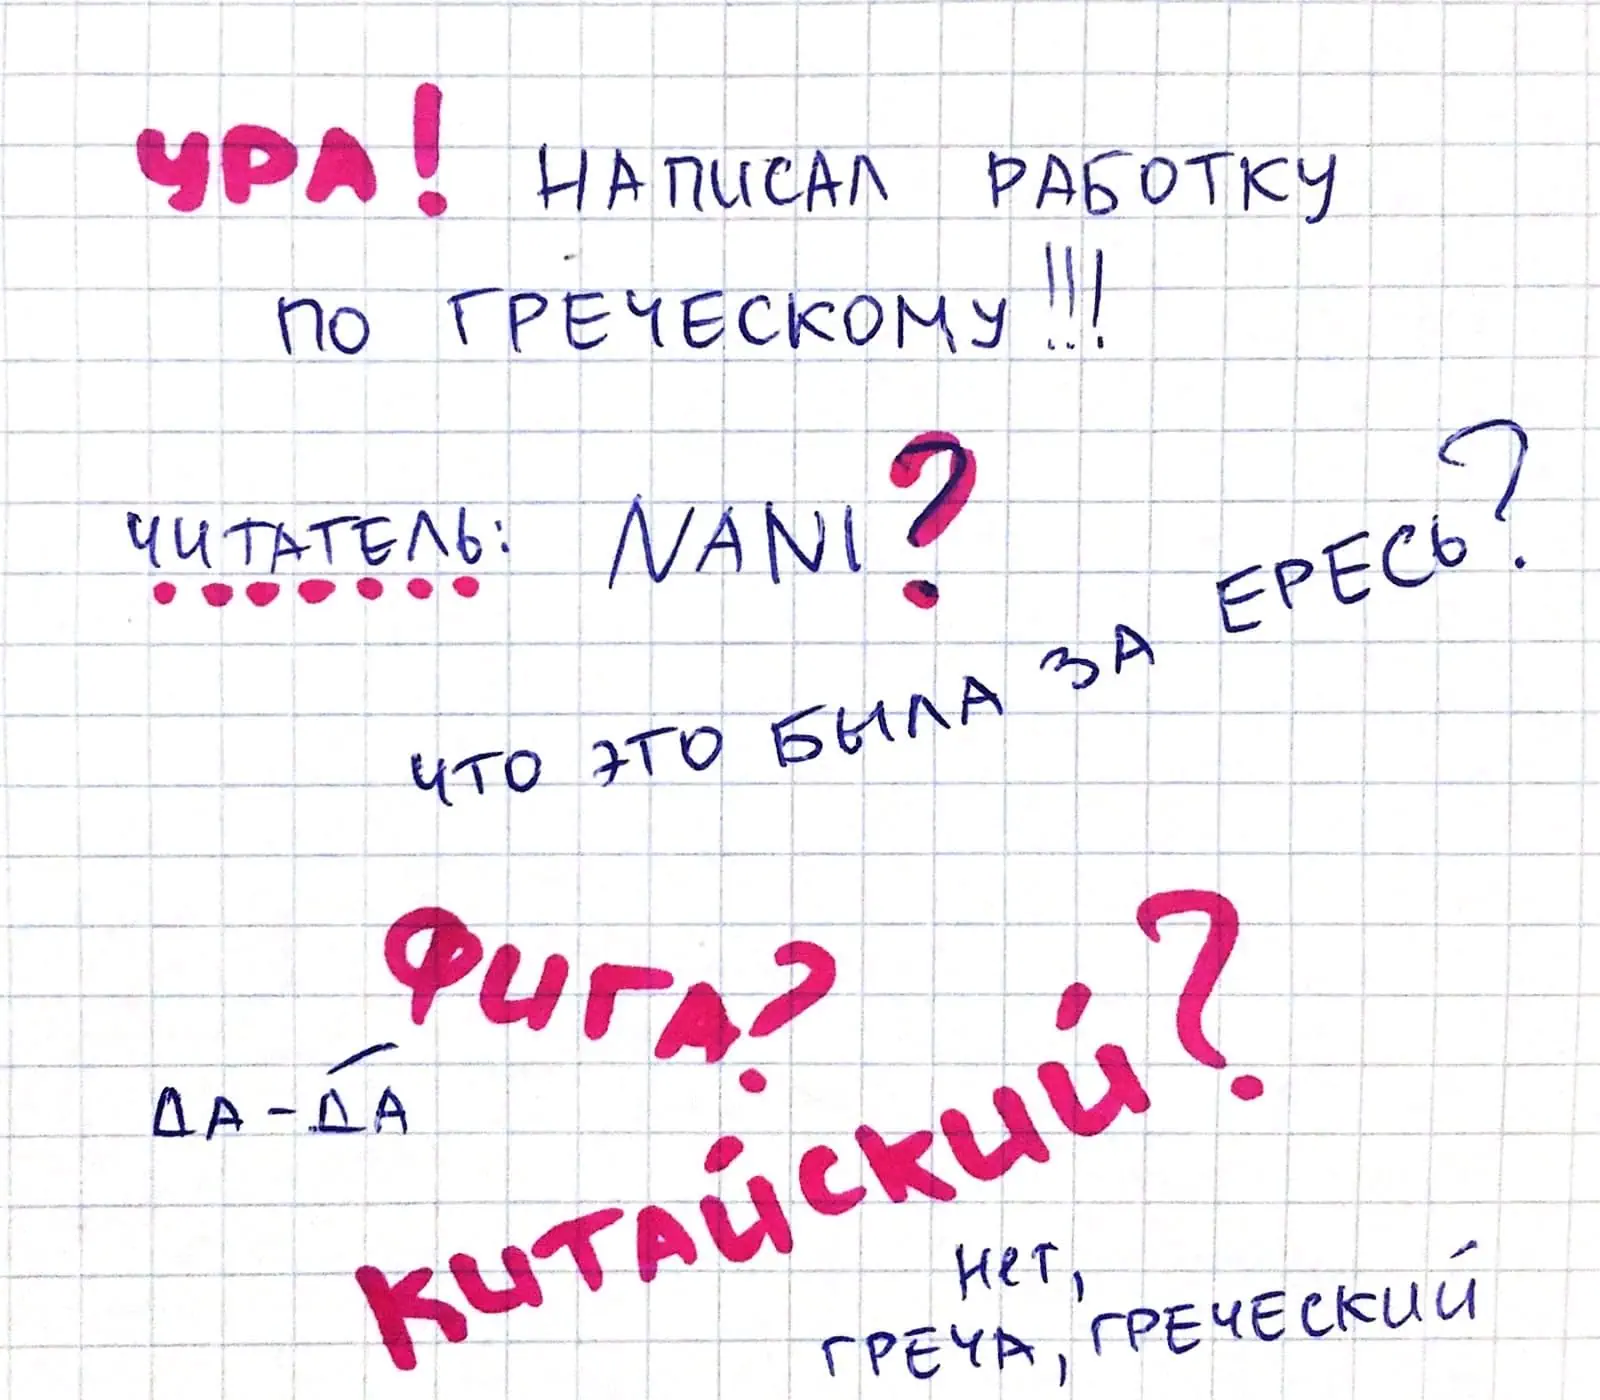 УРА! НАПИСАЛ РАБОТКУ
ПО ГРЕЧЕСКОМУ!!!
ЧИТАТЕЛЬ: NANI?
ЧТО ЭТО БЫЛА ЗА ЕРЕСЬ?
ФИГА?
ДА-ДА
КИТАЙСКИЙ?
НЕТ,
ГРЕЧА, ГРЕЧЕСКИЙ